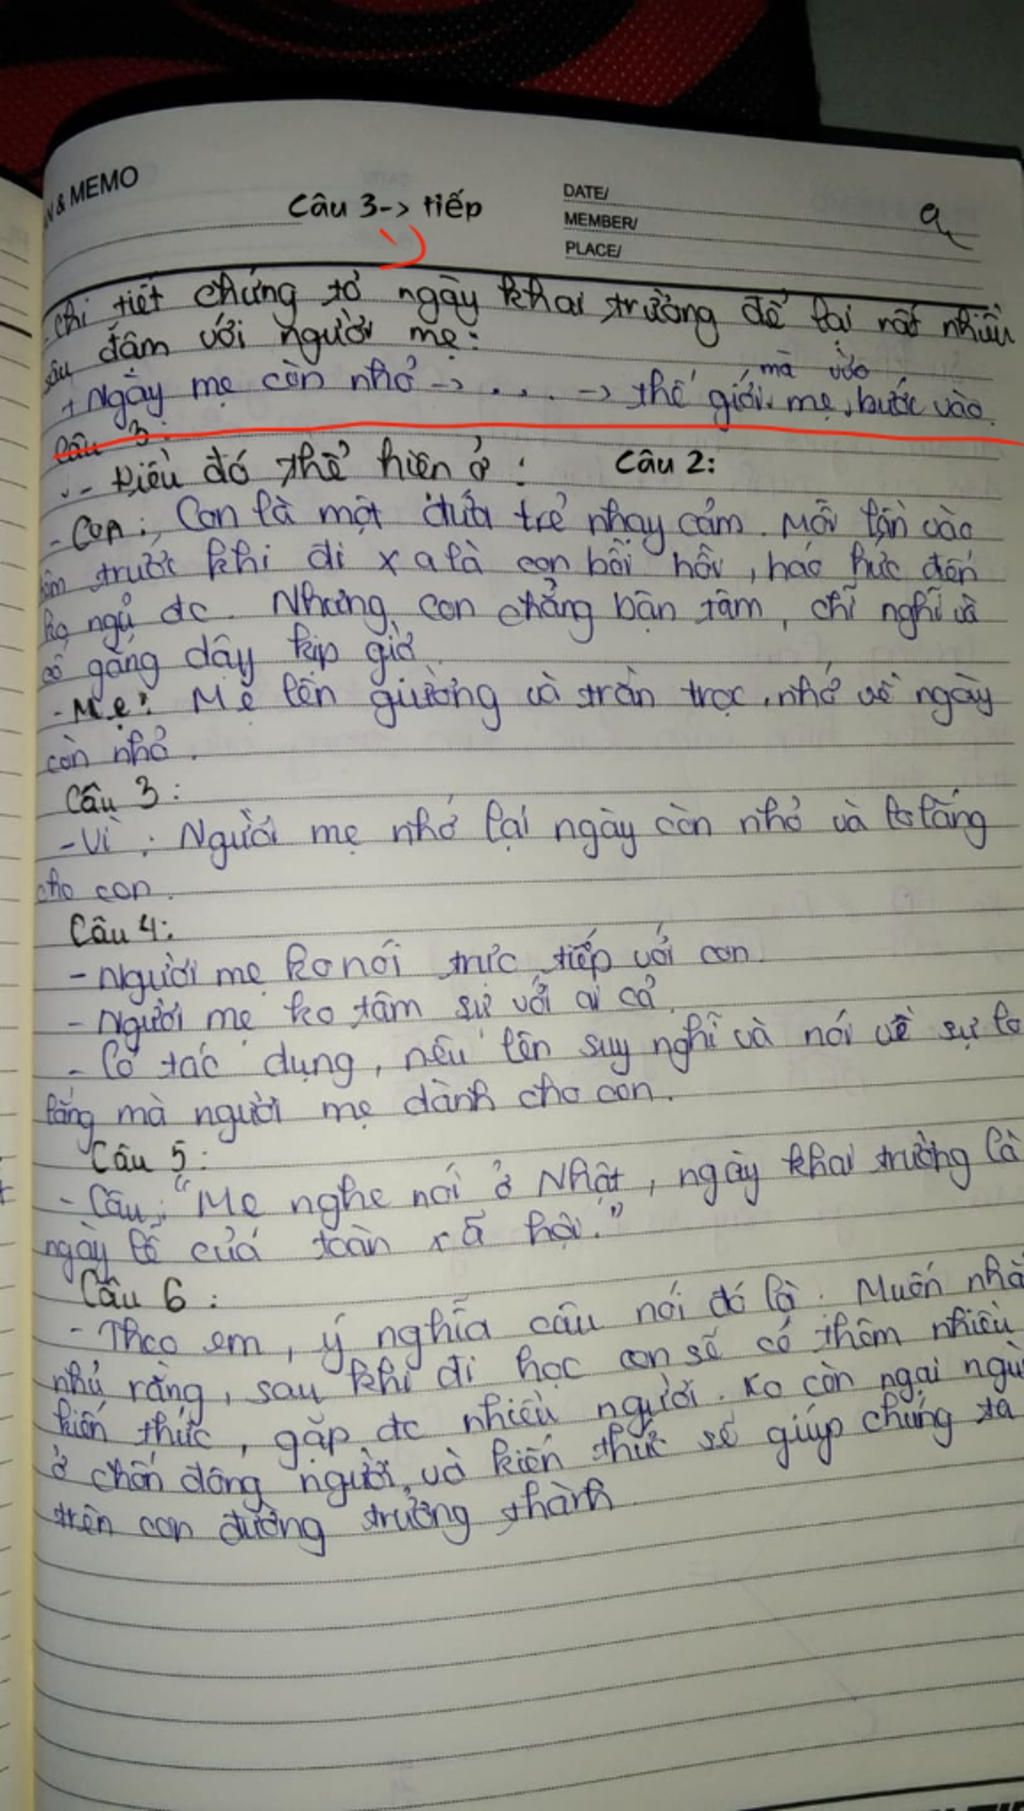 & MEMO
Câu 3-> tiếp
DATE/
MEMBER/
PLACE/
- Chi tiết chứng tỏ ngày khai trường để lại rất nhiều
sâu đậm với người mẹ:
+ Ngày mẹ còn nhỏ -> . . . -> thế giới mà mẹ vừa bước vào.
Câu 3:
- Điều đó thể hiện ở: Câu 2:
- Con: Con là một đứa trẻ nhạy cảm. Mỗi lần vào
đêm trước khi đi xa là con bồi hồi, háo hức đến
ko ngủ đc. Nhưng con chẳng bận tâm, chỉ nghĩ về
cố gắng dậy kịp giờ
- Mẹ: Mẹ lên giường và trằn trọc, nhớ về ngày
còn nhỏ.
Câu 3:
- Vì: Người mẹ nhớ lại ngày còn nhỏ và lo lắng
cho con.
Câu 4:
- Người mẹ ko nói trực tiếp với con.
- Người mẹ ko tâm sự với ai cả.
- Có tác dụng, nêu lên suy nghĩ và nói về sự lo
lắng mà người mẹ dành cho con.
Câu 5:
- Câu: "Mẹ nghe nói ở Nhật, ngày khai trường là
ngày lễ của toàn xã hội."
Câu 6:
- Theo em, ý nghĩa câu nói đó là: Muốn nhắn
nhủ rằng, sau khi đi học con sẽ có thêm nhiều
kiến thức, gặp đc nhiều người. Ko còn ngại ngùng
ở chốn đông người, và kiến thức sẽ giúp chúng ta
trên con đường trưởng thành